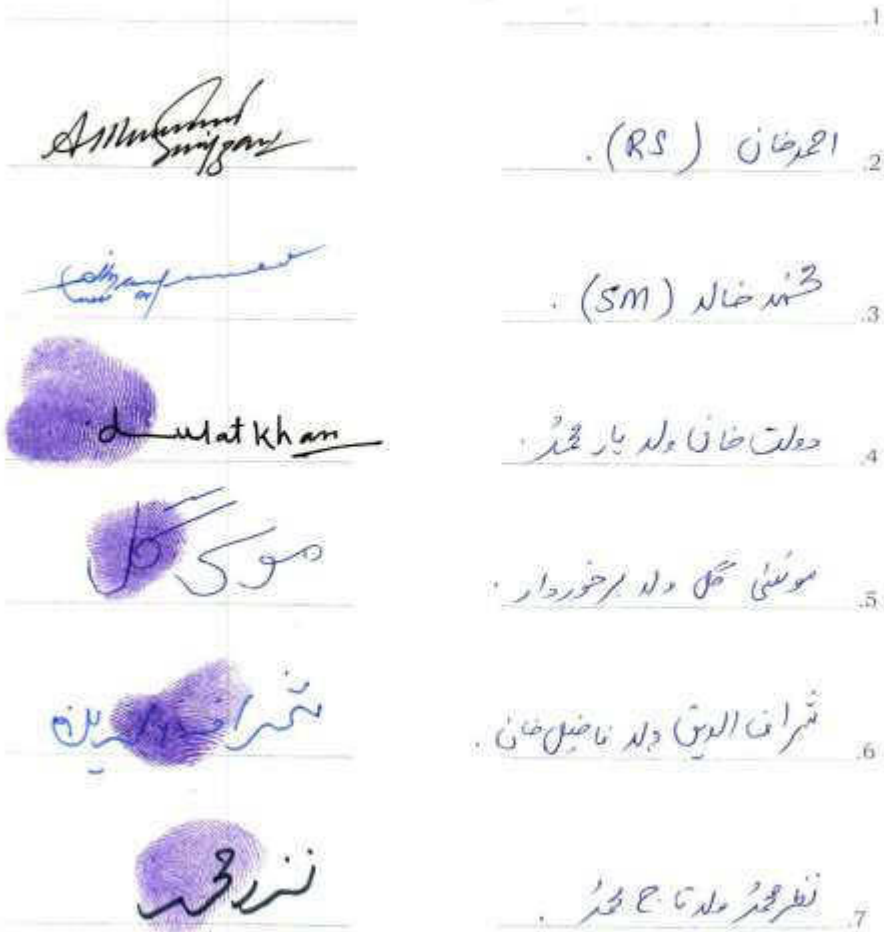 .1
.2 احمد خان (RS).
.3 محمد خالد (SM).
.4 دولت خان ولد یار محمد.
dulat khan
.5 گل ولد برخوردار.
گل
.6 شراف الدین ولد فاضل خان.
شراف الدین
.7 نظر محمد ولد تاج محمد.
نزر محمد